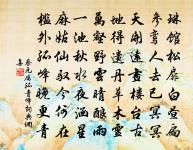 琳館松扉白晝扃
參鸞人去已冥冥
天開遠畫樓台古
地得遺丹草木靈
萬壑野雲晴釀雨
一池秋水夜涵星
麻姑仙馭今何在
檻外孤峰晚更青